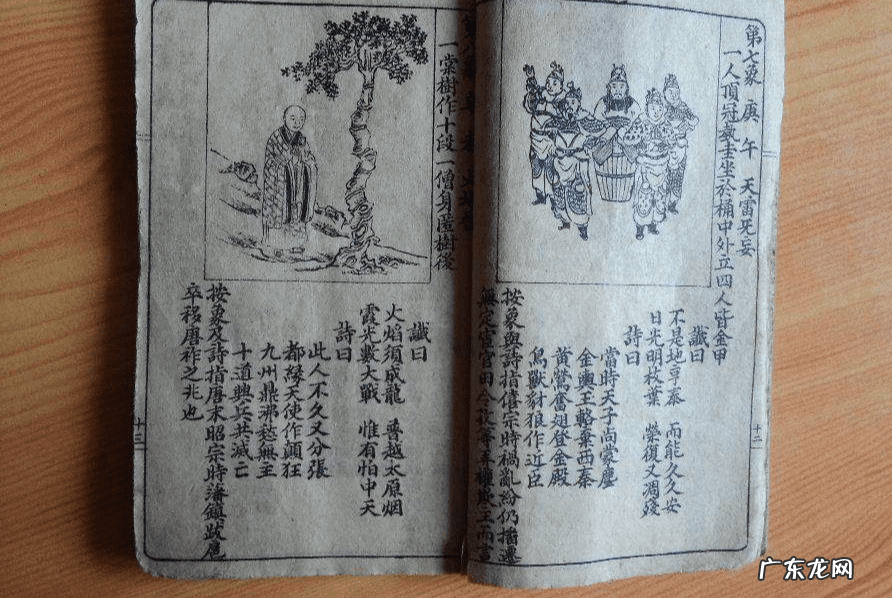 第七象 庚午 天雷旡妄
一人頂冠執圭坐於桶中外立四人皆金甲
讖曰
不是地享泰 而能久久安
日光明枝葉 榮復又凋殘
詩曰
當時天子尚蒙塵
金輿玉輅棄西秦
黄鶯奮翅登金殿
鳥獸豺狼作近臣
按象與詩指僖宗時禍亂紛仍播遷
無定宦官田令孜等專權欺主而言
十二
一棠樹作十段一僧身匿樹後
讖曰
火焰須成龍 普越太原烟
霞光數大戰 惟有怕中天
詩曰
此人不久又分張
都緣天使作顛狂
九州鼎沸愁無主
十道興兵共滅亡
按象及詩指唐末昭宗時藩鎮跋扈
卒移唐祚之兆也
十三
广东龙网